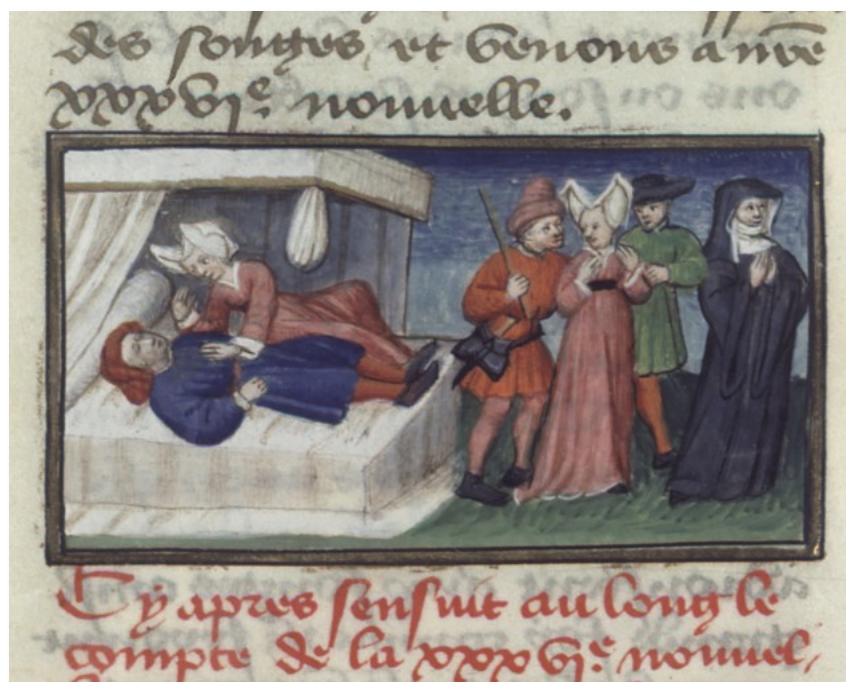 des songes, et venons a nr̄e
xxxvje. nouuelle.
Cy apres sensuit au long le
compte de la xxxvje. nouuel,